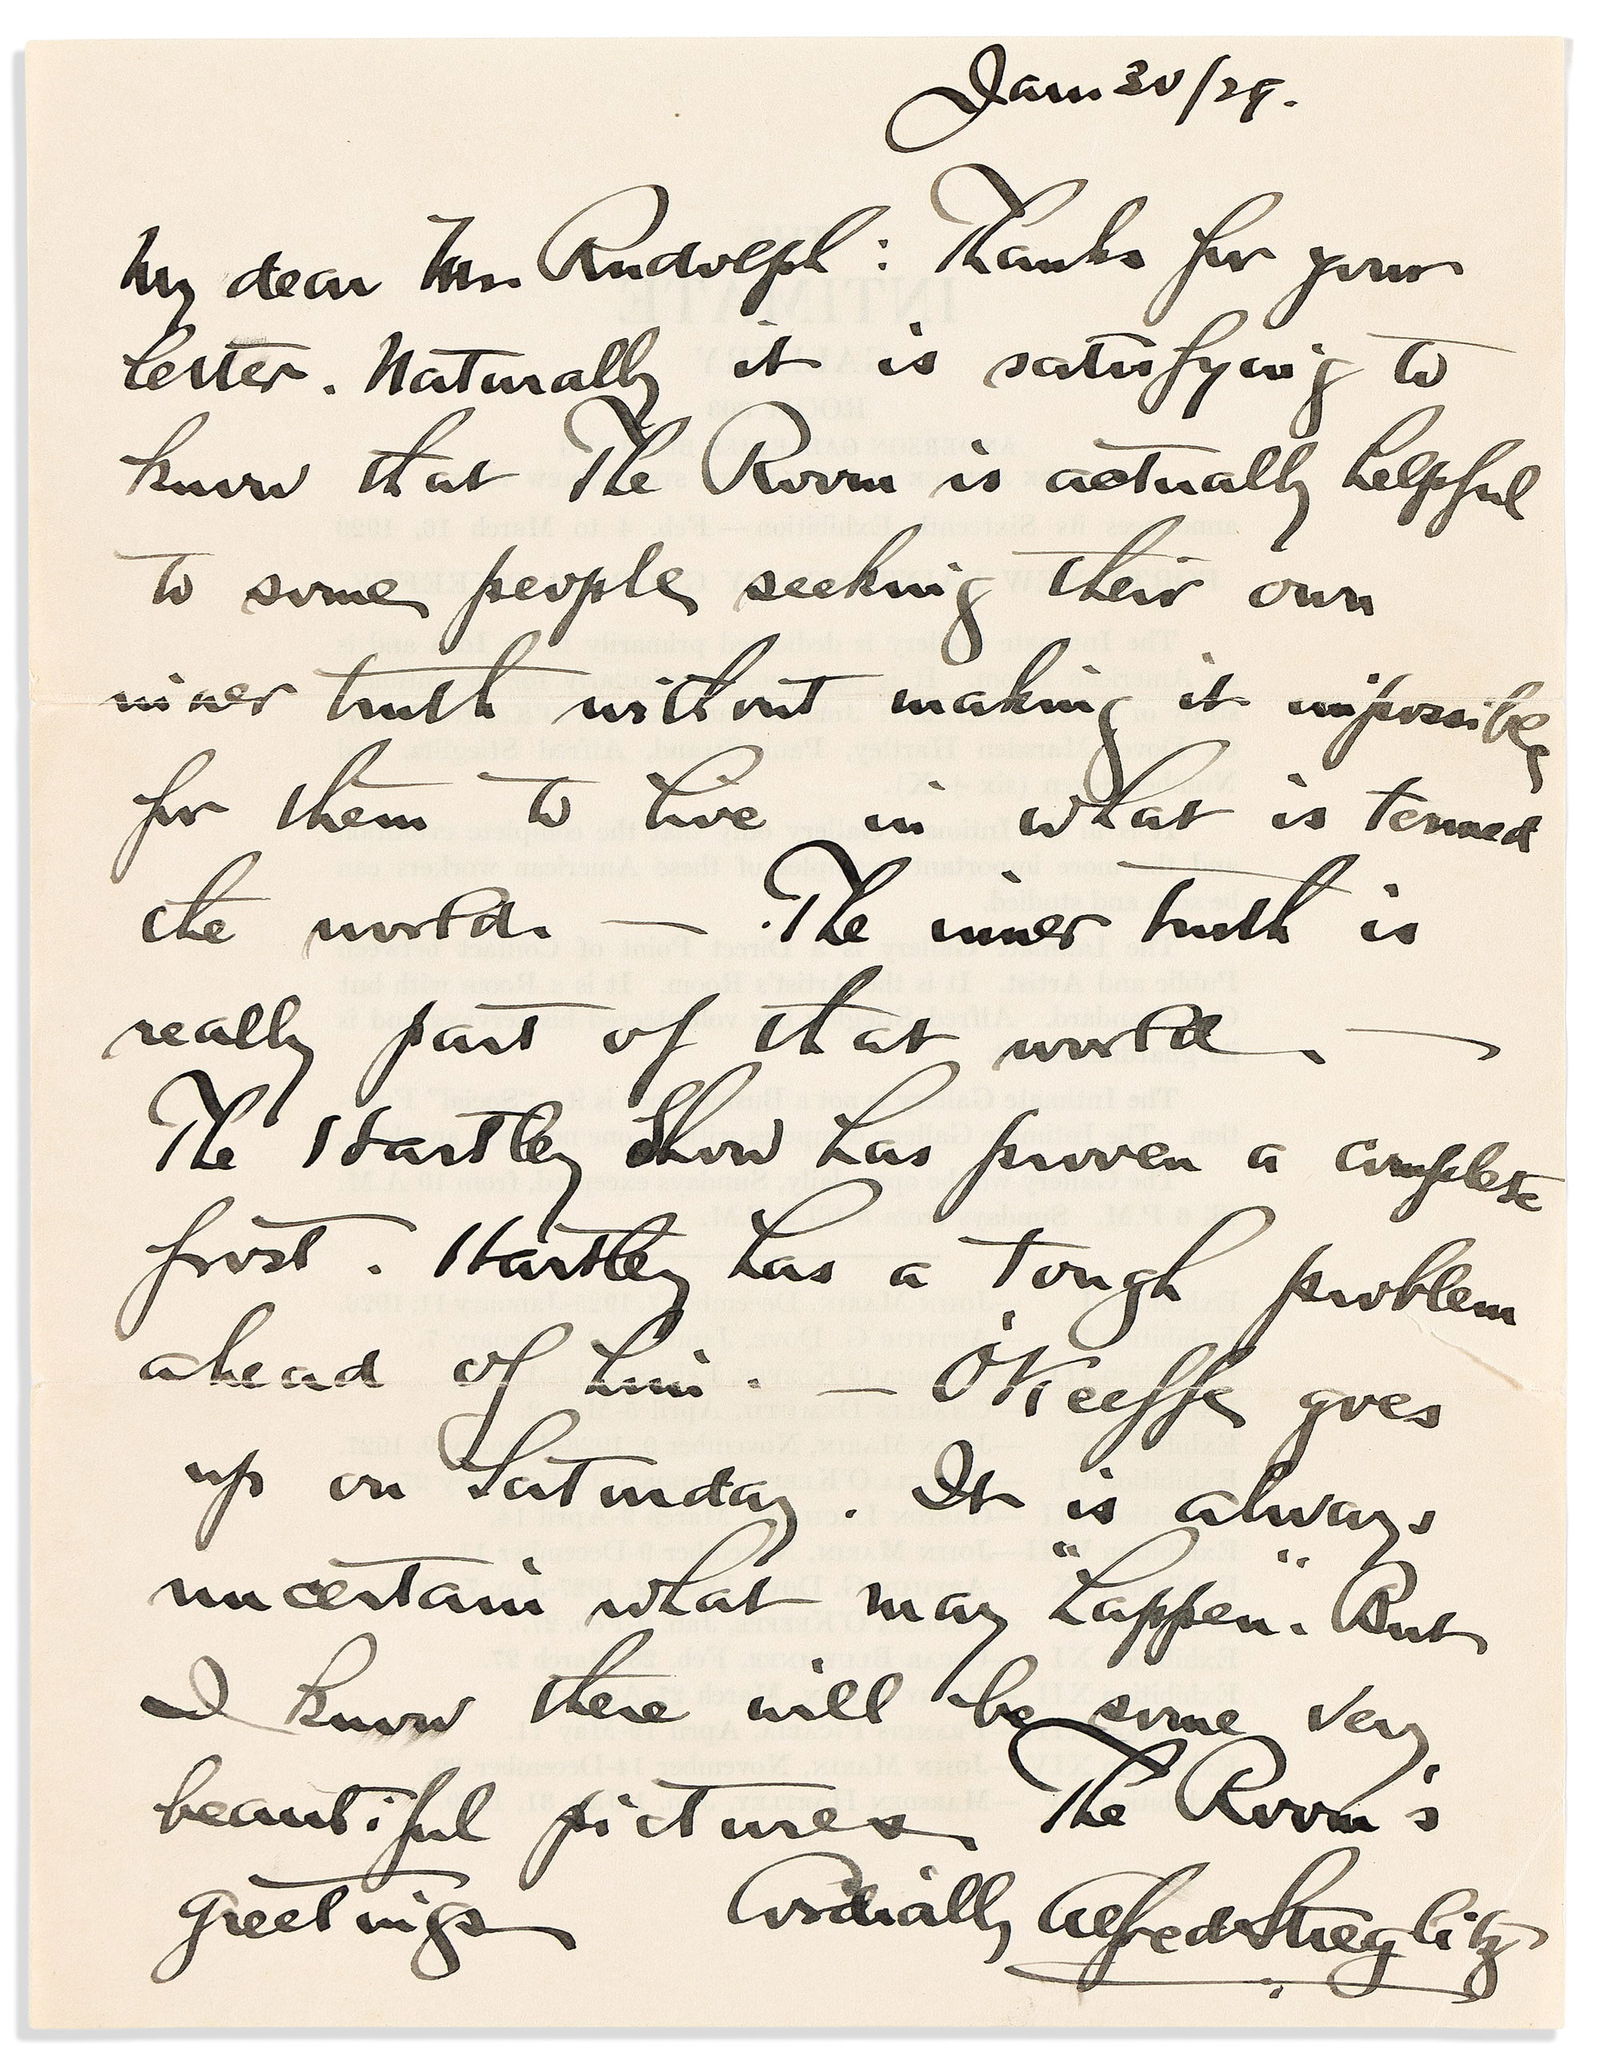 Jan 30/29.
My dear Mr. Rudolph: Thanks for your
letter. Naturally it is satisfying to
know that The Room is actually helpful
to some people seeking their own
inner truth without making it impossible
for them to live in what is termed
the world. — The inner truth is
really part of that world. —
The Hartley Show has proven a complete
frost. Hartley has a tough problem
ahead of him. — O'Keeffe goes
up on Saturday. It is always
uncertain what may "happen". But
I know there will be some very
beautiful pictures. The Room's
greetings Cordially Alfred Stieglitz